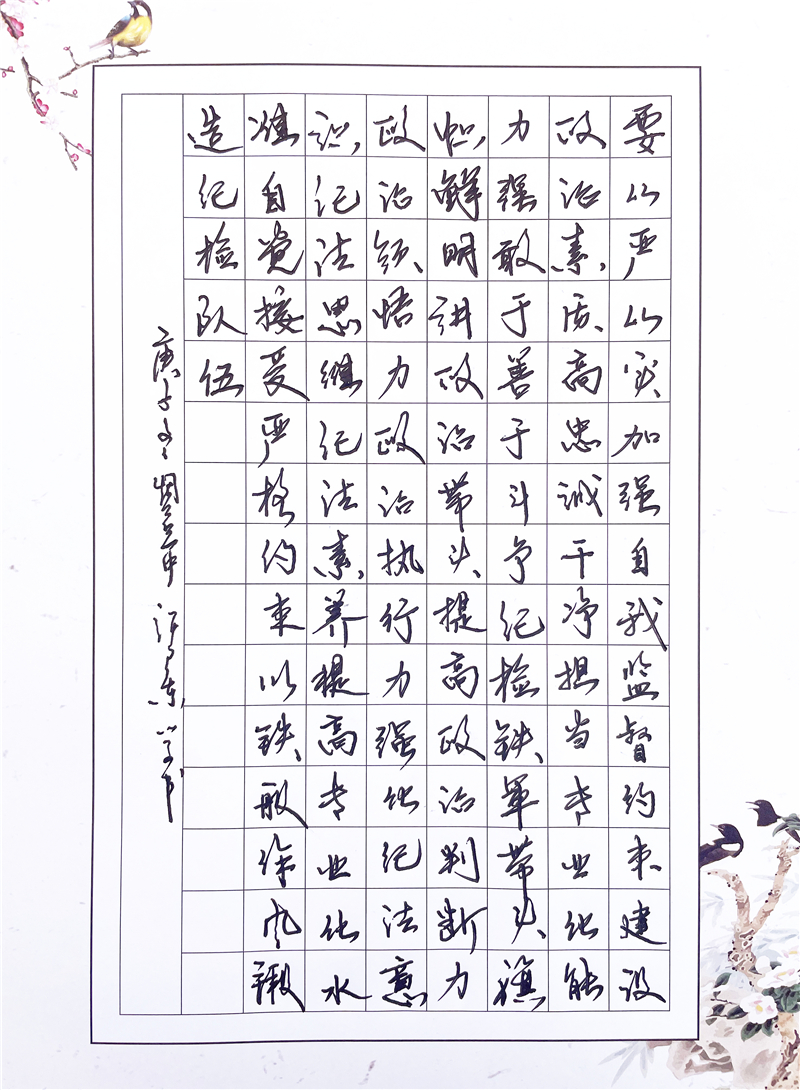 要以严以实加强自我监督约束建设
政治素质高忠诚干净担当专业化能
力强敢于善于斗争纪检铁军带头旗
帜鲜明讲政治带头提高政治判断力
政治领悟力政治执行力强化纪法意
识纪法思维纪法素养提高专业化水
准自觉接受严格约束以铁般作风锻
造纪检队伍
庚子冬